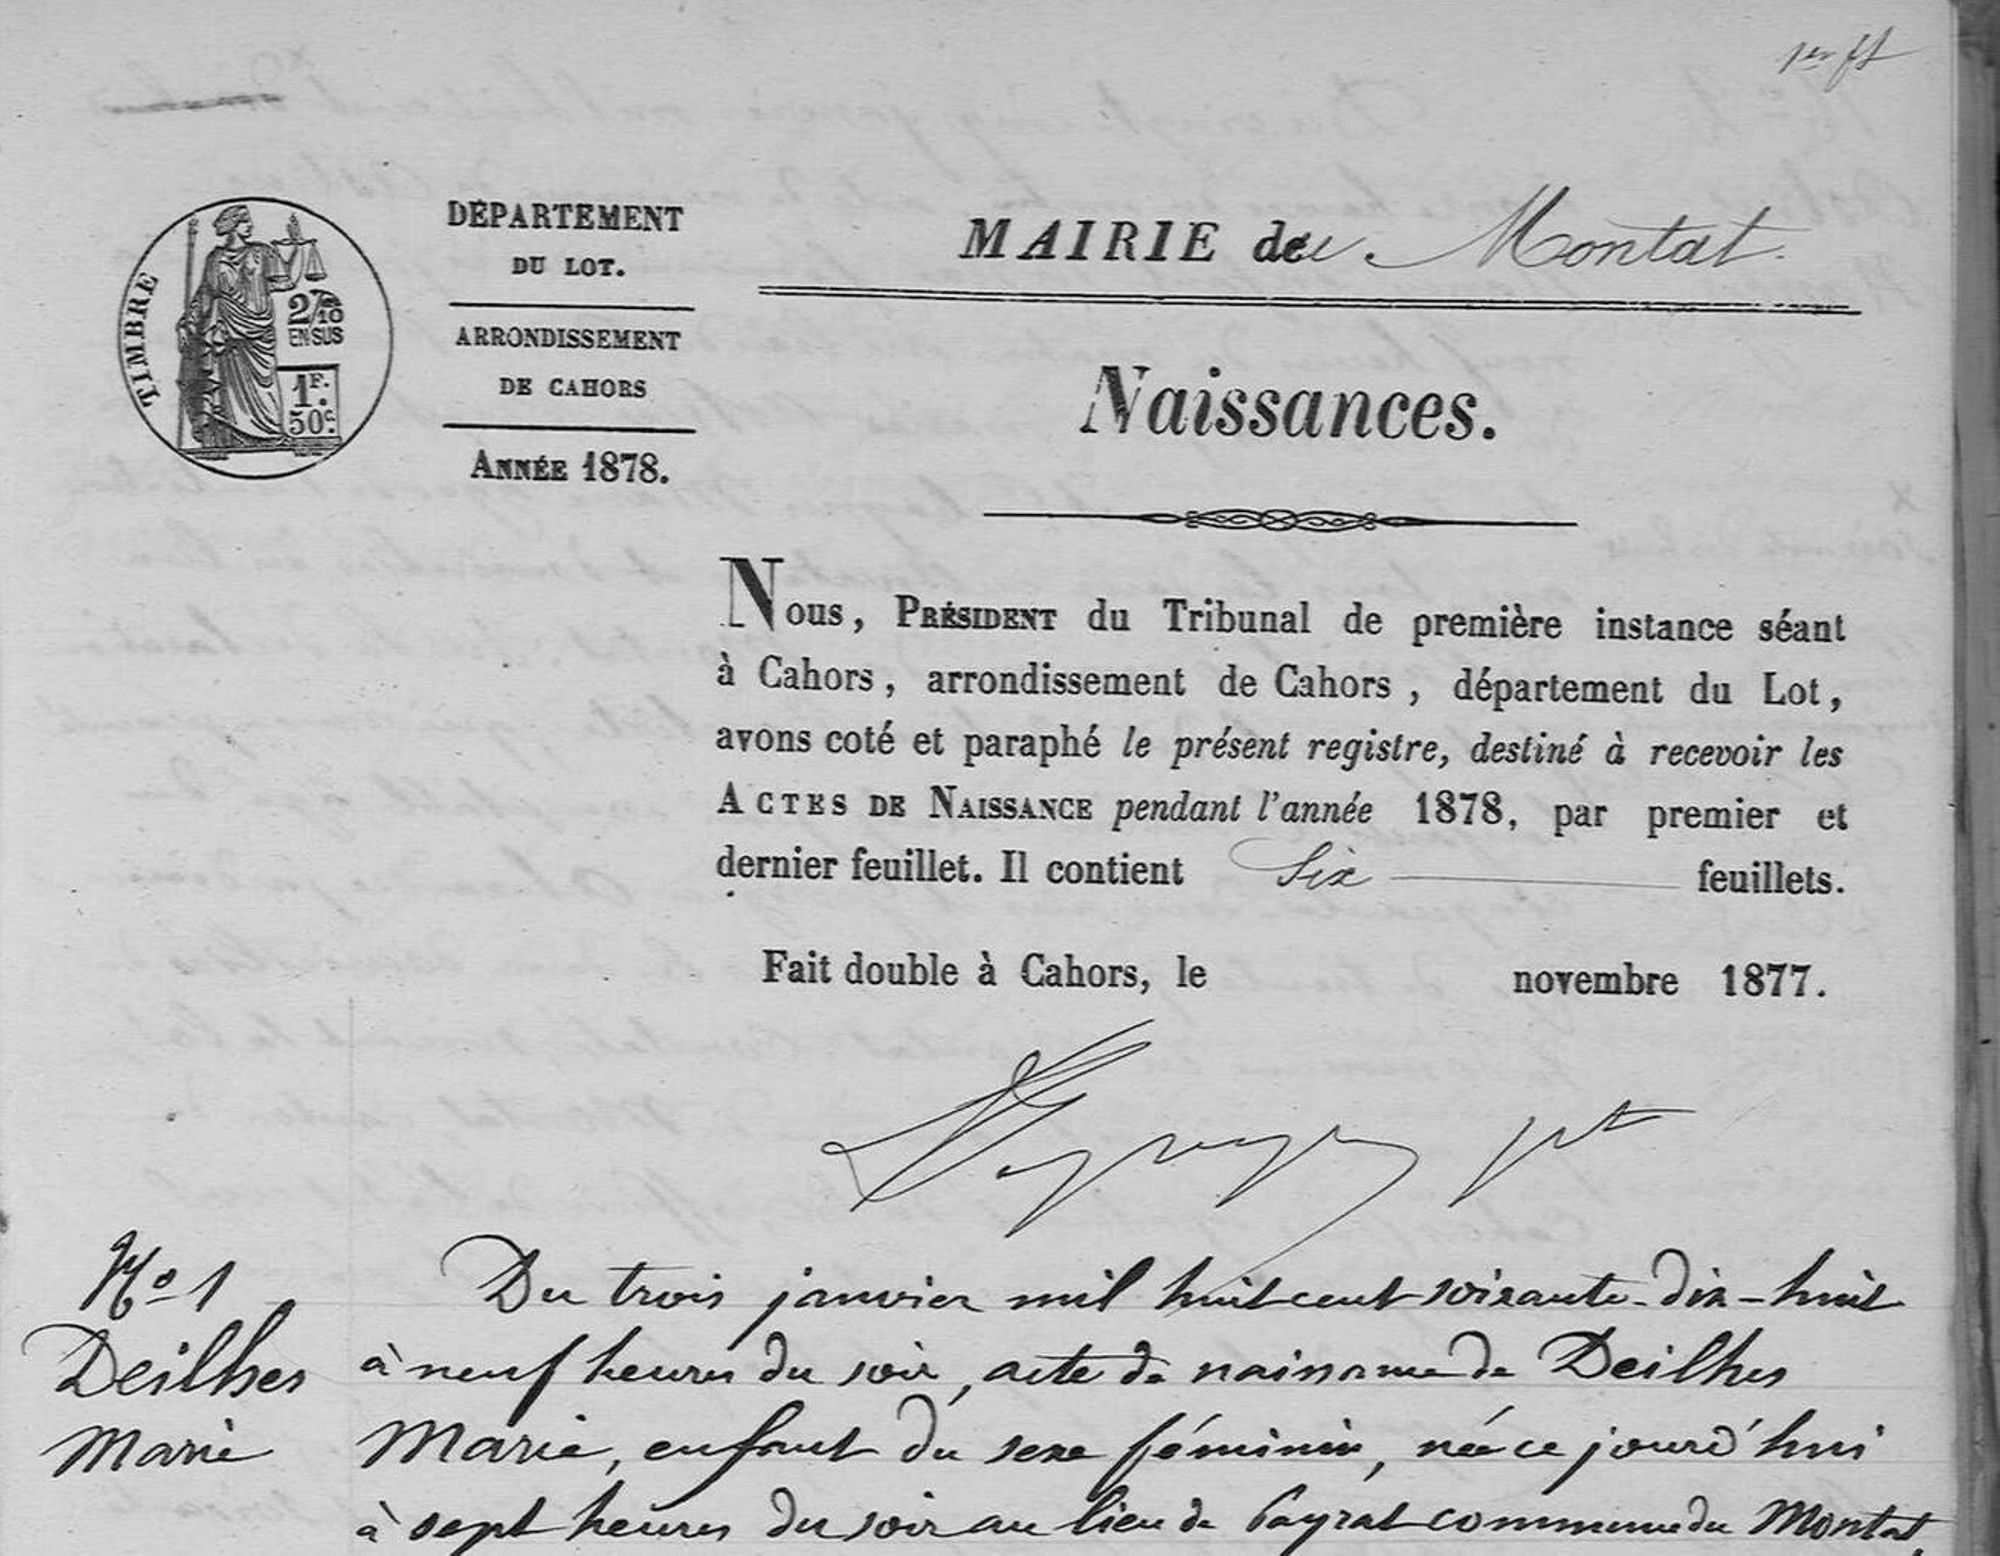 1er ft
TIMBRE
2/10es
EN SUS
1F.
50c.
DÉPARTEMENT
DU LOT.
ARRONDISSEMENT
DE CAHORS
ANNÉE 1878.
MAIRIE deu Montat.
Naissances.
Nous, PRÉSIDENT du Tribunal de première instance séant
à Cahors, arrondissement de Cahors, département du Lot,
avons coté et paraphé le présent registre, destiné à recevoir les
ACTES DE NAISSANCE pendant l'année 1878, par premier et
dernier feuillet. Il contient Six feuillets.
Fait double à Cahors, le novembre 1877.
pt
No 1
Deilhes
Marie
Du trois janvier mil huit cent soixante-dix-huit
à neuf heures du soir, acte de naissance de Deilhes
Marie, enfant du sexe féminin, née ce jourd'hui
à sept heures du soir au lieu de Payrat commune du Montat,